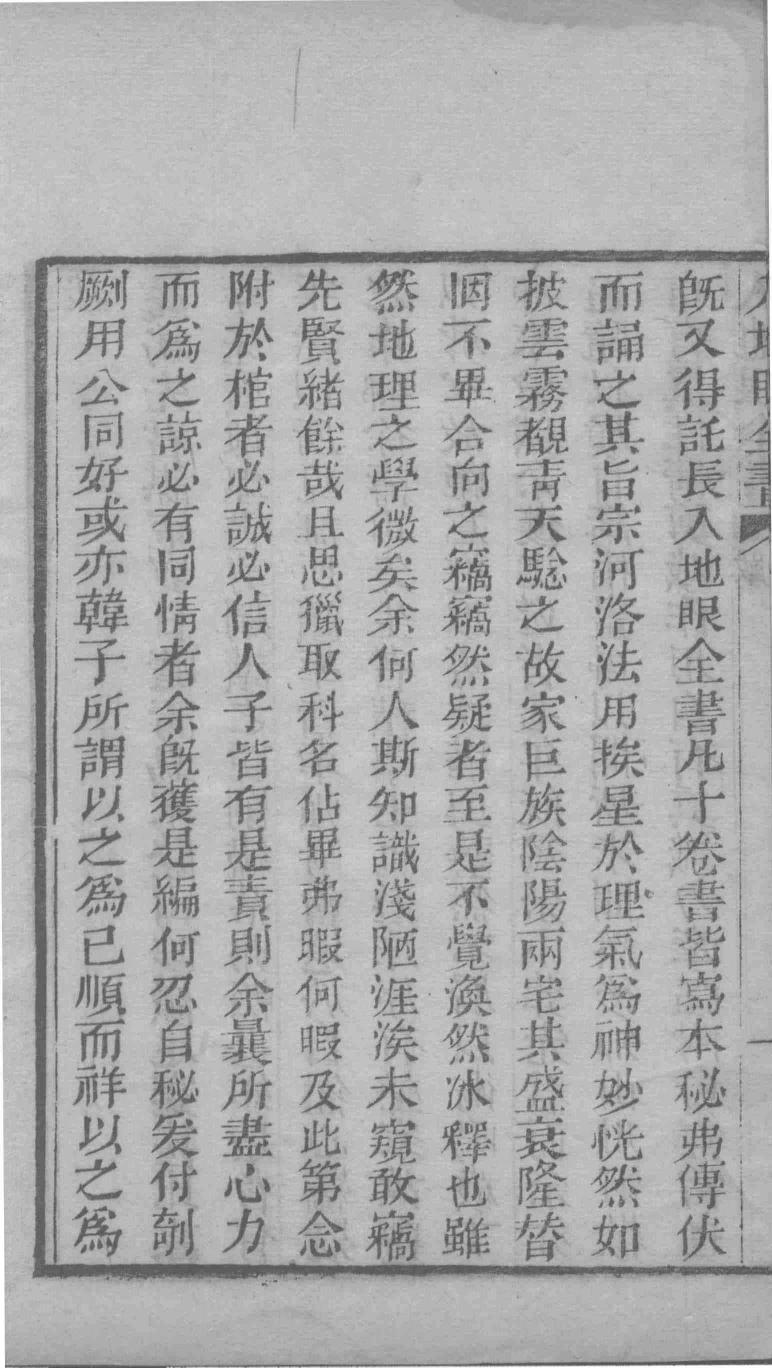 入地眼全書
一
旣又得託長入地眼全書凡十卷書皆寫本秘弗傳伏
而誦之其旨宗河洛法用挨星於理氣爲神妙恍然如
披雲霧覩靑天騐之故家巨族陰陽兩宅其盛衰隆替
罔不畢合向之竊竊然疑者至是不覺渙然冰釋也雖
然地理之學微矣余何人斯知識淺陋涯涘未窺敢竊
先賢緒餘哉且思獵取科名佔畢弗暇何暇及此第念
附於棺者必誠必信人子皆有是責則余曩所盡心力
而爲之諒必有同情者余旣獲是編何忍自秘爰付剞
劂用公同好或亦韓子所謂以之爲已順而祥以之爲